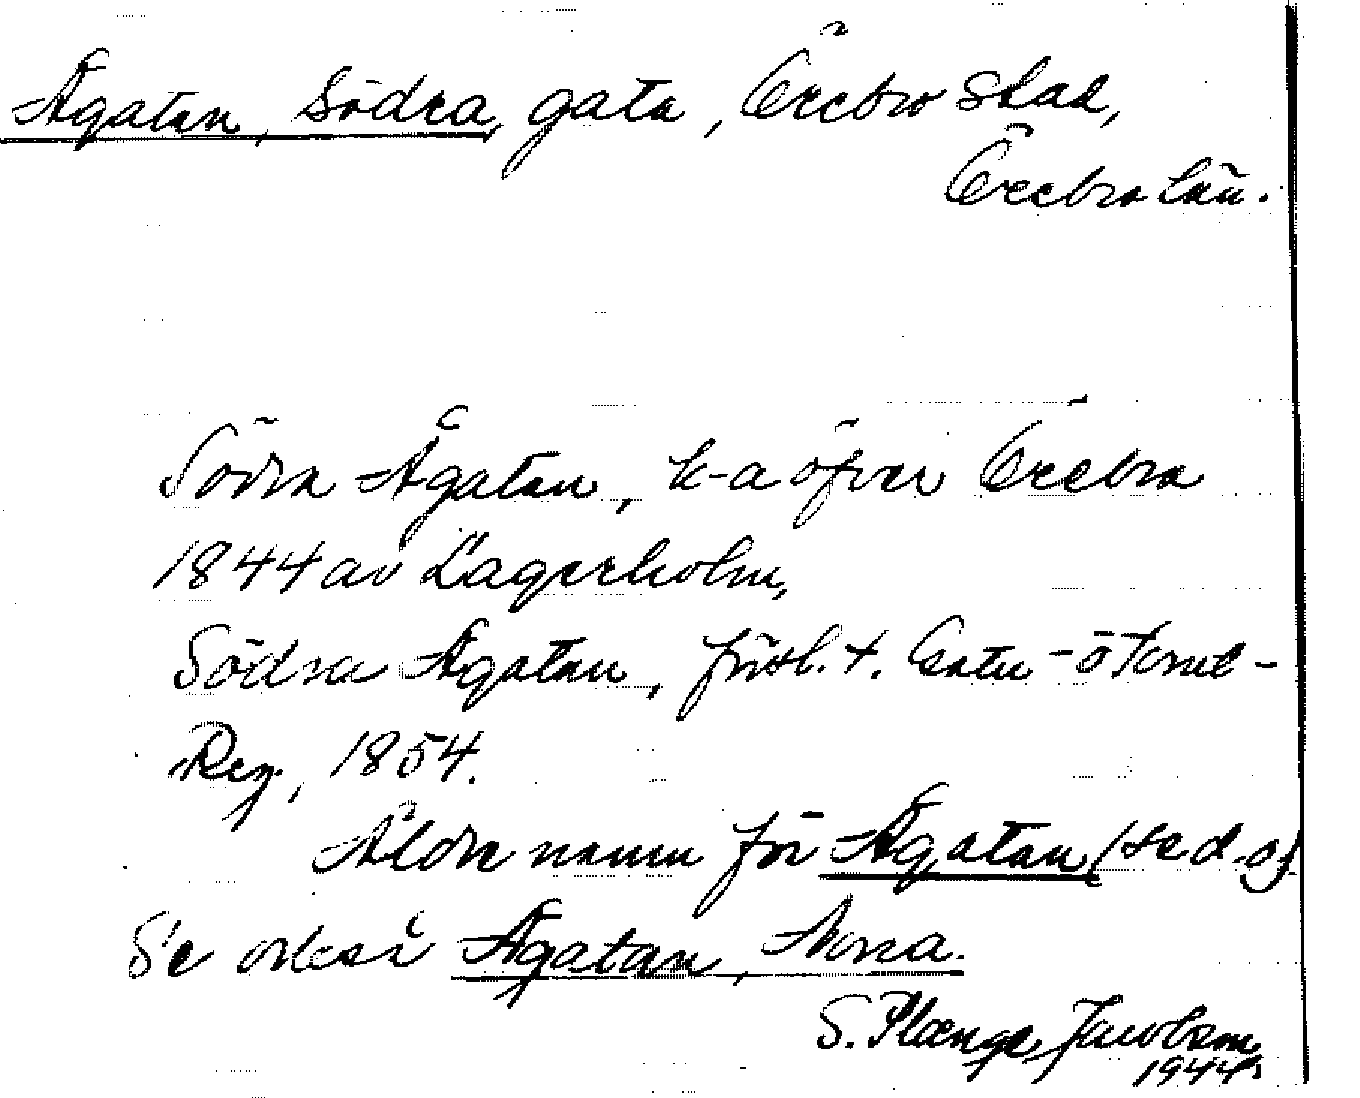 Ågatan, Södra, gata, Örebro stad,
Örebro län.
Södra Ågatan, k-a öfver Örebro
1844 av Lagerholm,
Södra Ågatan, förtl. t. Gatu-ö Tomt-
Reg., 1854.
Äldre namn för Ågatan (se d. o)
Se också Ågatan, Norra.
S. Plænge Jacobson
1944.